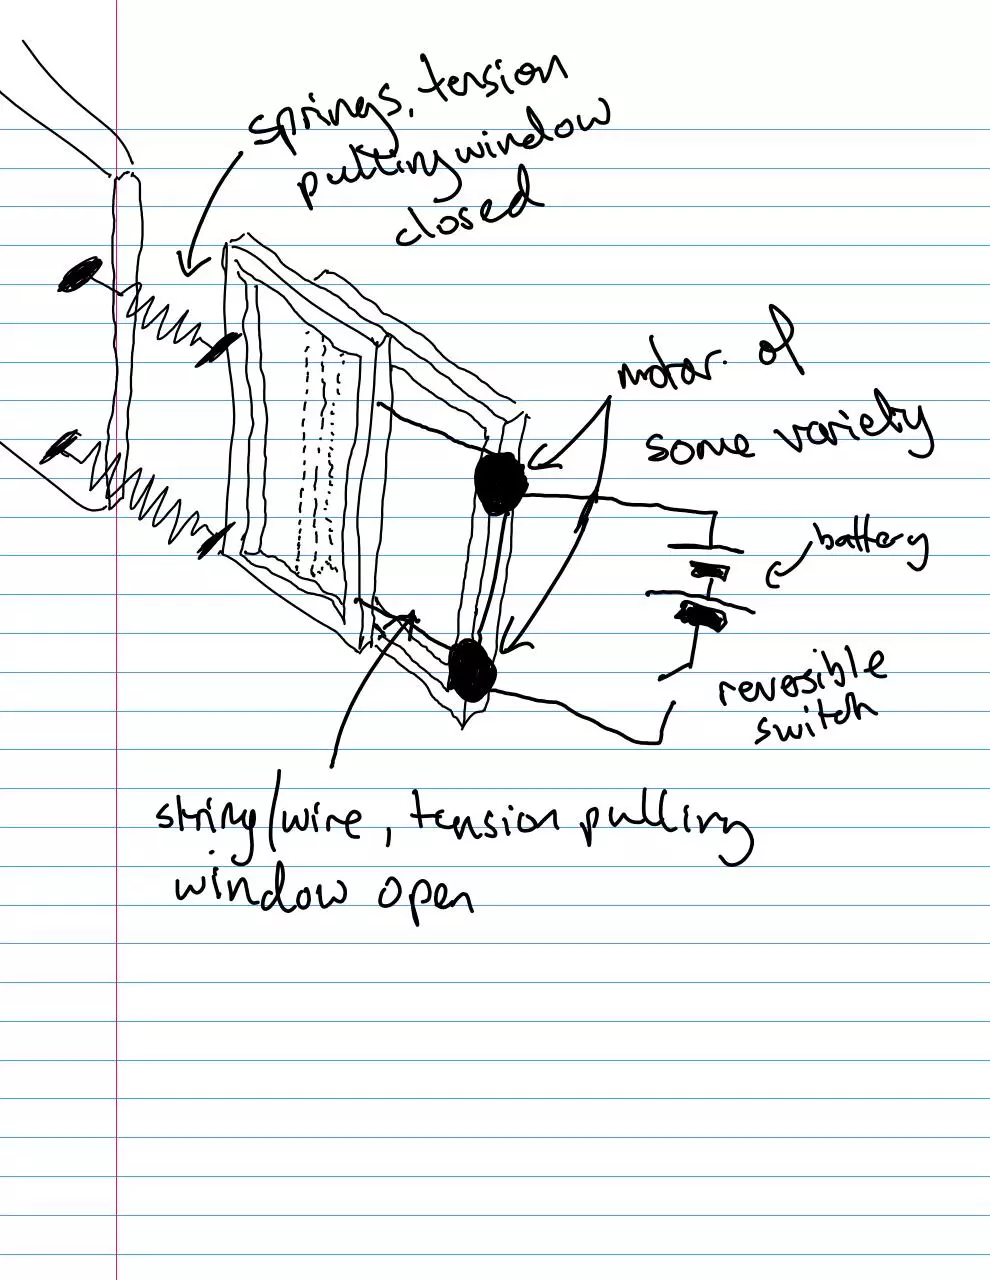 springs, tension
pulling window
closed
motor of
some variety
battery
reversible
switch
string/wire, tension pulling
window open